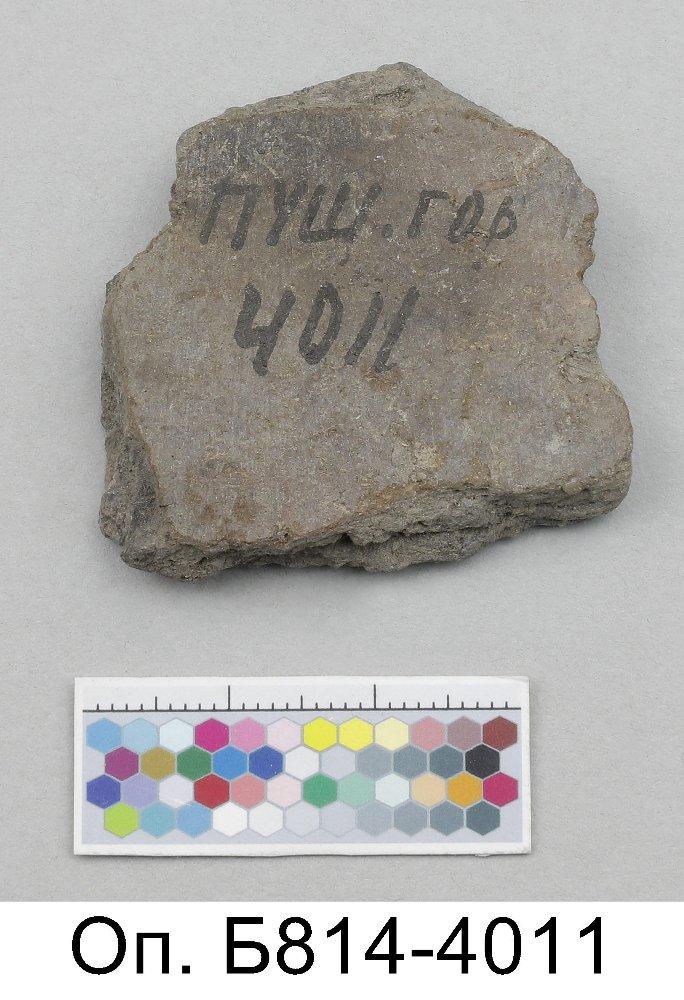 ПУШ.ГОР
4011
Оп. Б814-4011